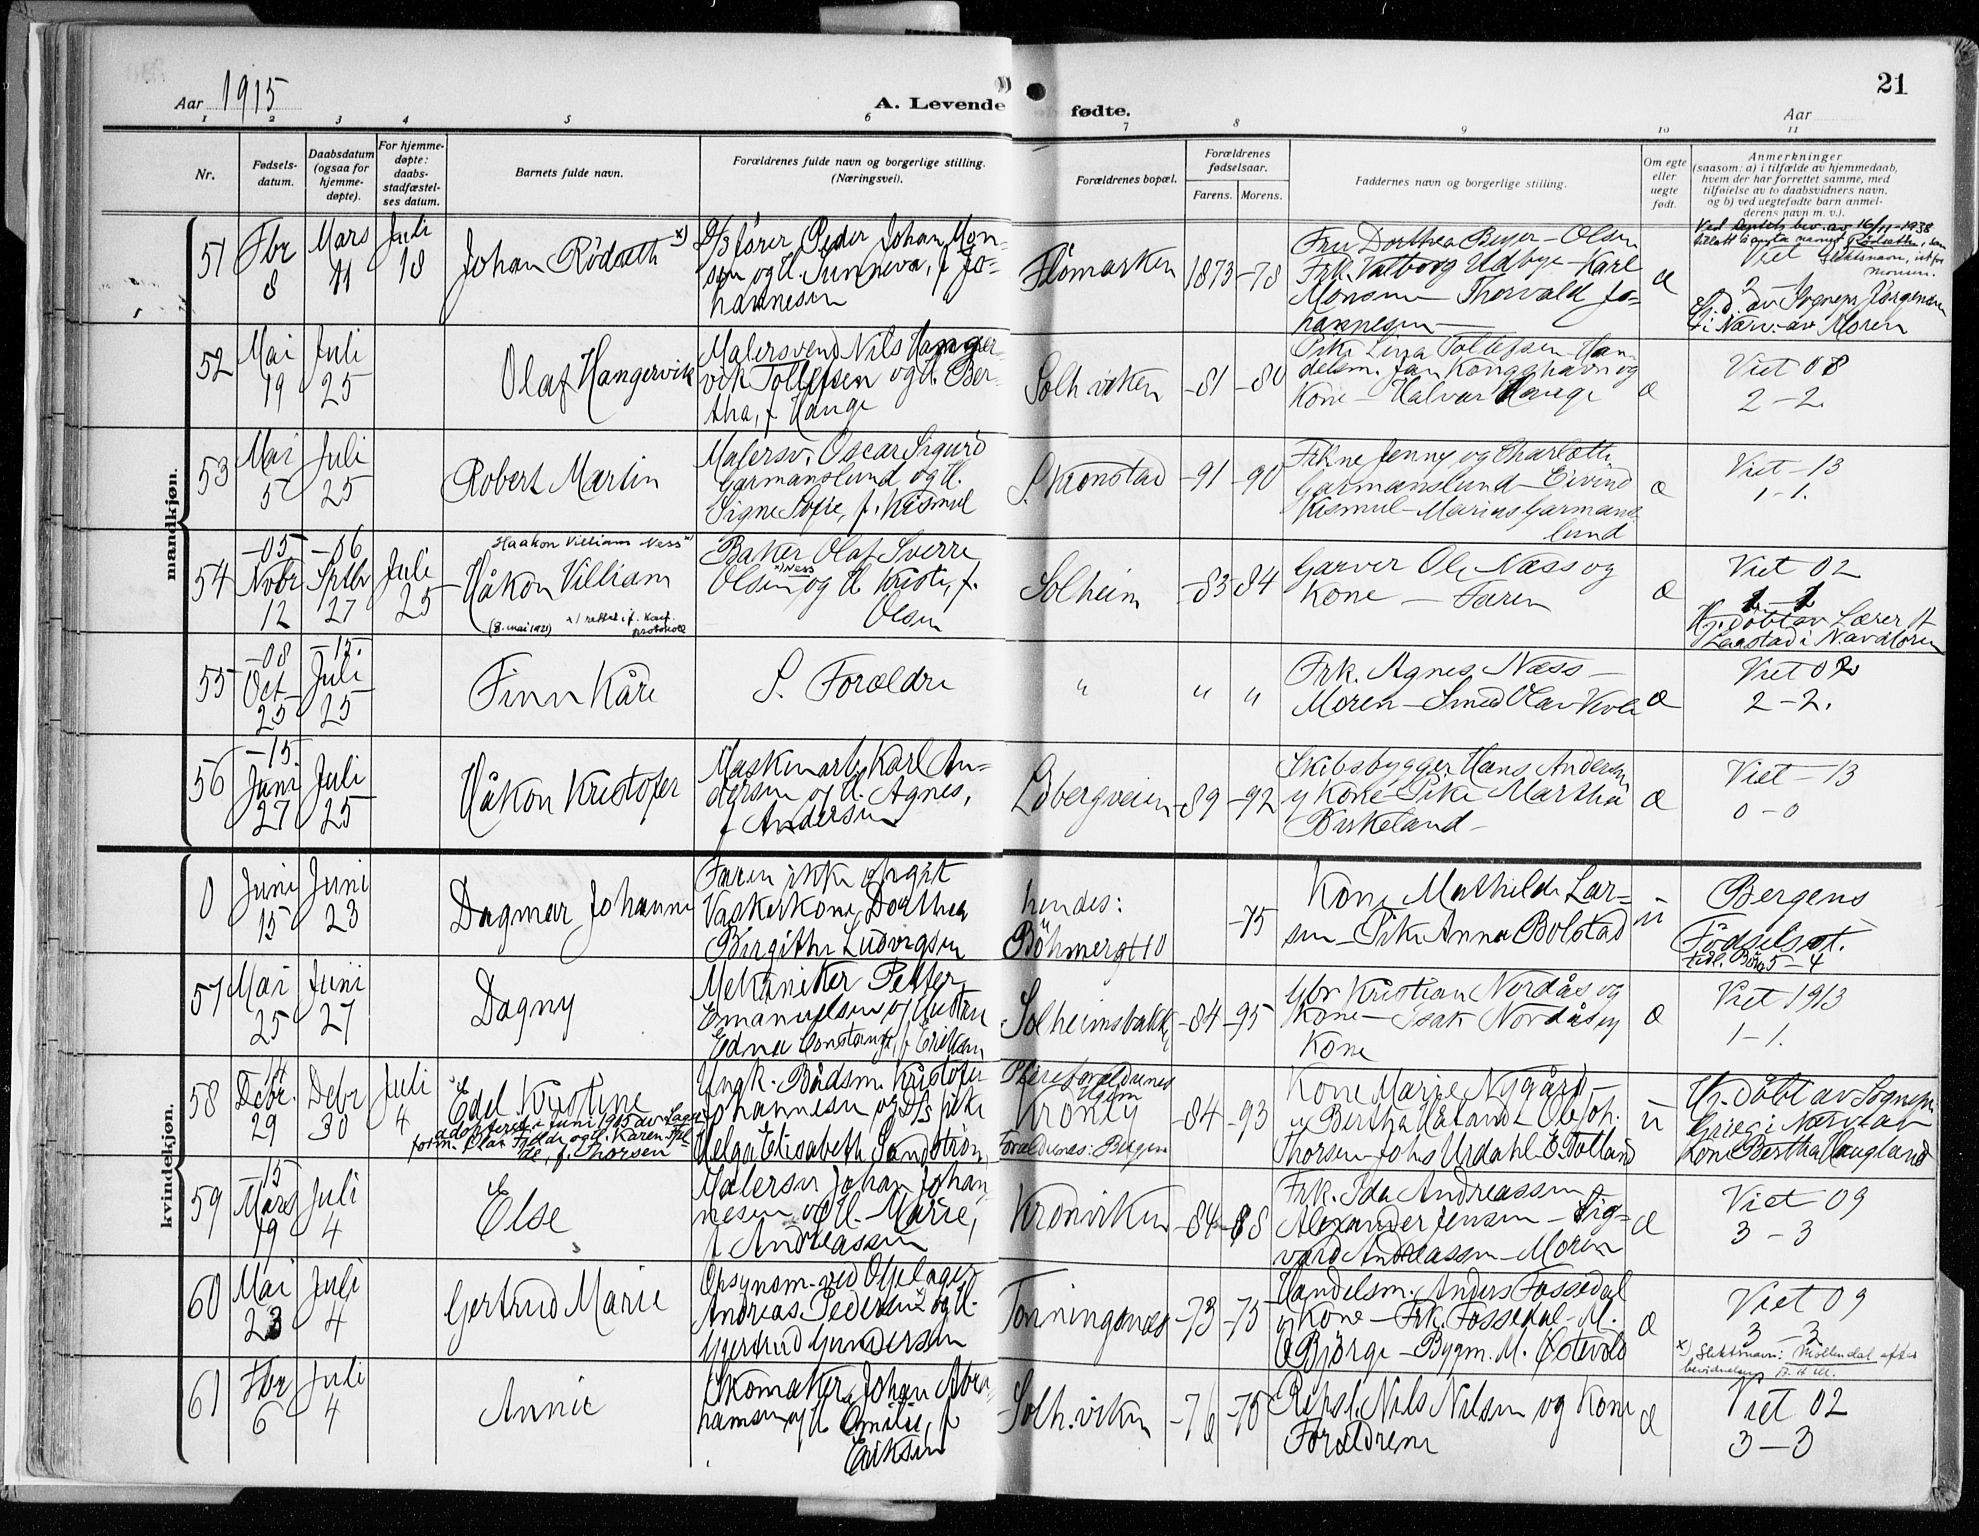 21
Aar 1915
A. Levende fødte.
Aar
1 2 3 4 5 6 7 8 9 10 11
Nr.
Fødsels-
datum.
Daabsdatum
(ogsaa for
hjemme-
døpte).
For hjemme-
døpte:
daabs-
stadfæstel-
ses datum.
Barnets fulde navn.
Forældrenes fulde navn og borgerlige stilling.
(Næringsvei).
Forældrenes bopæl.
Forældrenes
fødselsaar.
Farens. Morens.
Faddernes navn og borgerlige stilling.
Om egte
eller
uegte
født.
Anmerkninger
(saasom: a) i tilfælde av hjemmedaab,
hvem der har forrettet samme, med
tilføielse av to daabsvidners navn,
og b) ved uegtefødte barn anmel-
derens navn m. v.).
mandkjøn.
51
Fbr
8
Mars
11
Juli
18
Johan Rödseth x)
fører Peder Johan Mon-
sen og H. Sunneva, f. Jo-
hannesen
Flömarken
1873 -78
Fru Dorthea Beyer - Olsen
Frk. Valborg Udbye - Karl
Monsen - Thorvald Jo-
hannesen
æ
16/11-1938
Viet
av Sognepr. Jørgensen
i Nærv. av Moren
52
Mai
19
Juli
25
Olaf Hangervik
Malersvend Nils Hanger-
vik Tollefsen og H. Ber-
tha, f. Hauge
Solh.viken
-81 -80
Pike Lina Tollefsen - Han-
delsm. Jan Kongshavn og
Kone - Halvar Hauge
æ
Viet 08
2 - 2.
53
Mai
5
Juli
25
Robert Martin
Malersv. Oscar Sigurd
Garmanslund og H.
Signe Sofie, f. Kismul
S. Kronstad
-91 -90
Frkne Jenny og Charlotte
Garmanslund - Eivind
Kismul - Marius Garmans-
lund
æ
Viet - 13
1 - 1.
54
-05
Novbr
12
-06
Sptbr
27
Juli
25
Haakon Villiam Ness x)
Håkon Villiam
(8. mai 1921) x) rettet i f. Konf.
protokoll
Baker Olaf Sverre
x) Ness
Olsen og H. Kristi, f.
Olsen
Solheim
-83 -84
Garver Ole Næss og
Kone - Faren
æ
Viet 02
Hj. döbt av Lærer H
Laastad i
55
-08
Oct
25
-15.
Juli
25
Finn Kåre
S. Forældre
" " "
Frk. Agnes Næss -
Moren - Smed Olav
æ
Viet 02
2 - 2.
56
-15
Juni
27
Juli
25
Håkon Kristofer
Maskinarb. Karl An-
dersen og H. Agnes,
f. Andersen
Löbergveien
-89 -92
Skibsbygger Hans Andersen
og Kone - Pike Martha
Birkeland -
æ
Viet - 13
0 - 0
kvindekjøn.
0
Juni
15
Juni
23
Dagmar Johanne
Faren ikke opgit
Vaskerkone Dorthea
Birgithe Ludvigsen
hendes:
Böhmergt 10
-75
Kone Mathilde Lar-
sen - Pike Anna Bolstad
ü
Bergens
Födselsst.
tidl. Börn 5 - 4
57
Mai
25
Juni
27
Dagny
Mekaniker Petter
Emanuelsen og Hustru
Edna Constance, f. Eriksen
Solheimsbakk
-84 -95
Gbr Kristian Nordås og
Kone - Isak Nordås og
Kone
æ
Viet 1913
1 - 1.
58
14
Debr.
29
Debr
30
Juli
4
Edel Kristine
adopteret i Juni 1915 av Lager-
form. Olaf Fjelde og H. Karen Fjel-
de, f. Thorsen
Ungk. Bådsm. Kristofer
Johannesen og Pike
Helga Elisabeth Sandström
Pleieforældrenes
Hjem
Kronvig
Forældrenes: Bergen
-84 -93
Kone Marie Nygård -
Bertha Håland - Ole Joh.
Thorsen - Johs Urdahl - E. Totland
ü
Hj. döbt av Sognepr.
i Nærv. av
Kone Bertha Haugland
59
-15
Mars
19
Juli
4
Else
Malersv Johan Johan-
nesen og H. Marie,
f. Andreassen
Kronviken
-84 -88
Frk. Ida Andreassen
Alexander Jensen - Sig-
vard Andreassen - Moren
æ
Viet 09
3 - 3
60
Mai
23
Juli
4
Gertrud Marie
Opsynsm. ved Oljelager
Andreas Pedersen x) og H.
Gjertrud Gundersen
Tonningsnes
-73 -75
Handelsm. Anders Fossedal
og Kone - Frk. Fossedal - M.
Bjørge - Bygm. M. Østevold
æ
Viet 09
3 - 3
x) Slektsnavn: Möllendal efter
bevidnelse
61
Fbr
6
Juli
4
Annie
Skomaker Johan Abra-
hamsen og H. Emilie, f.
Eriksen
Solh.viken
-76 -75
Repsl. Nils Nilsen og Kone
Forældrene
æ
Viet 02
3 - 3